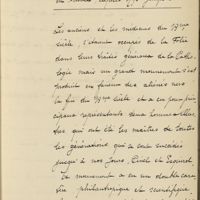 Les anciens et les modernes du 17me
siècle, s'étaient occupés de la Folie
dans leurs traités généraux de la Patho-
logie mais un grand mouvement s'est
produit en faveur des aliénés vers
la fin du 18me siècle et a eu pour prin
cipaux représentants deux hommes
qui ont été les maîtres de toutes
les générations qui se sont succédées
jusqu'à nos jours, Pinel et Esquirol.
Ce mouvement a eu un double
philanthropique et scientifique